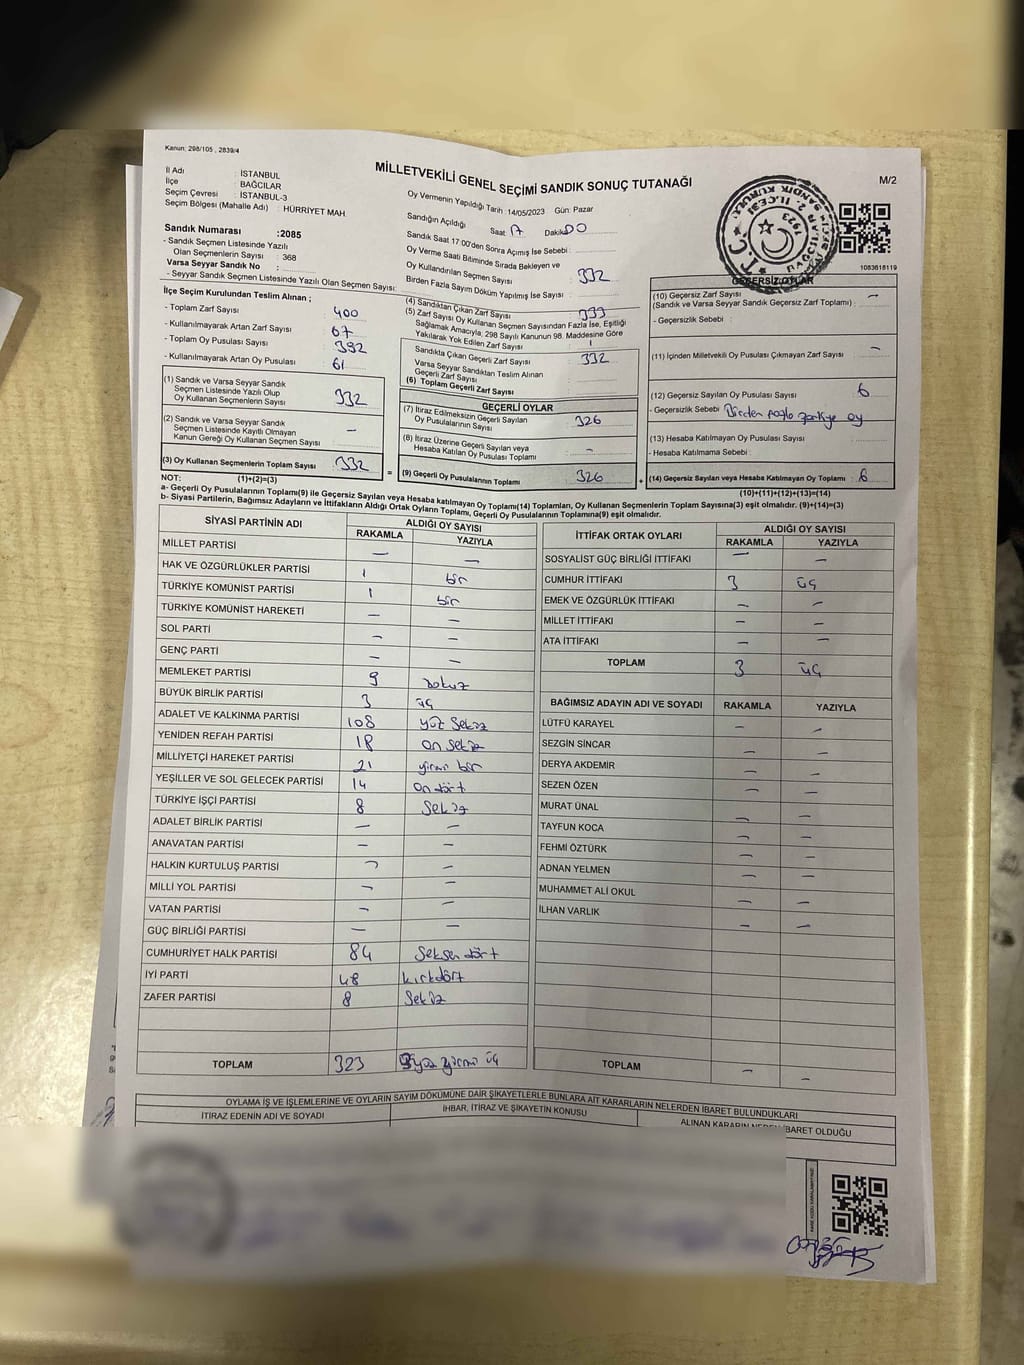 Kanun: 298/105 , 2839/4
MİLLETVEKİLİ GENEL SEÇİMİ SANDIK SONUÇ TUTANAĞI
M/2
İl Adı : İSTANBUL
İlçe : BAĞCILAR
Seçim Çevresi : İSTANBUL-3
Seçim Bölgesi (Mahalle Adı) : HÜRRİYET MAH.
Sandık Numarası :2085
- Sandık Seçmen Listesinde Yazılı
Olan Seçmenlerin Sayısı : 368
Varsa Seyyar Sandık No :
- Seyyar Sandık Seçmen Listesinde Yazılı Olan Seçmen Sayısı:
Oy Vermenin Yapıldığı Tarih :14/05/2023 Gün: Pazar
Sandığın Açıldığı Saat 17 Dakika 00
Sandık Saat 17 00'den Sonra Açımış İse Sebebi :
Oy Verme Saati Bitiminde Sırada Bekleyen ve
Oy Kullandırılan Seçmen Sayısı : 332
Birden Fazla Sayım Döküm Yapılmış İse Sayısı :
T.C.
BAĞCILAR
2. İLÇESİ
SANDIK KURULU
1923
1083618119
İlçe Seçim Kurulundan Teslim Alınan ;
- Toplam Zarf Sayısı : 400
- Kullanılmayarak Artan Zarf Sayısı : 67
- Toplam Oy Pusulası Sayısı : 392
- Kullanılmayarak Artan Oy Pusulası : 61
(1) Sandık ve Varsa Seyyar Sandık
Seçmen Listesinde Yazılı Olup
Oy Kullanan Seçmenlerin Sayısı : 332
(2) Sandık ve Varsa Seyyar Sandık
Seçmen Listesinde Kayıtlı Olmayan
Kanun Gereği Oy Kullanan Seçmen Sayısı : –
(3) Oy Kullanan Seçmenlerin Toplam Sayısı : 332
(1)+(2)=(3)
(4) Sandıktan Çıkan Zarf Sayısı : 333
(5) Zarf Sayısı Oy Kullanan Seçmen Sayısından Fazla İse, Eşitliği
Sağlamak Amacıyla, 298 Sayılı Kanunun 98. Maddesine Göre
Yakılarak Yok Edilen Zarf Sayısı : 1
Sandıkta Çıkan Geçerli Zarf Sayısı : 332
Varsa Seyyar Sandıktan Teslim Alınan
Geçerli Zarf Sayısı :
(6) Toplam Geçerli Zarf Sayısı :
GEÇERLİ OYLAR
(7) İtiraz Edilmeksizin Geçerli Sayılan
Oy Pusulalarının Sayısı : 326
(8) İtiraz Üzerine Geçerli Sayılan veya
Hesaba Katılan Oy Pusulası Toplamı : –
(9) Geçerli Oy Pusulalarının Toplamı : 326
GEÇERSİZ OYLAR
(10) Geçersiz Zarf Sayısı
(Sandık ve Varsa Seyyar Sandık Geçersiz Zarf Toplamı) : –
- Geçersizlik Sebebi :
(11) İçinden Milletvekili Oy Pusulası Çıkmayan Zarf Sayısı : –
(12) Geçersiz Sayılan Oy Pusulası Sayısı : 6
- Geçersizlik Sebebi : Birden fazla partiye oy
(13) Hesaba Katılmayan Oy Pusulası Sayısı :
- Hesaba Katılmama Sebebi :
(14) Geçersiz Sayılan veya Hesaba Katılmayan Oy Toplamı : 6
(10)+(11)+(12)+(13)=(14)
NOT:
a- Geçerli Oy Pusulalarının Toplamı(9) ile Geçersiz Sayılan veya Hesaba katılmayan Oy Toplamı(14) Toplamları, Oy Kullanan Seçmenlerin Toplam Sayısına(3) eşit olmalıdır. (9)+(14)=(3)
b- Siyasi Partilerin, Bağımsız Adayların ve İttifakların Aldığı Ortak Oyların Toplamı, Geçerli Oy Pusulalarının Toplamına(9) eşit olmalıdır.
SİYASİ PARTİNİN ADI ALDIĞI OY SAYISI
RAKAMLA YAZIYLA
MİLLET PARTİSİ – –
HAK VE ÖZGÜRLÜKLER PARTİSİ 1 bir
TÜRKİYE KOMÜNİST PARTİSİ 1 bir
TÜRKİYE KOMÜNİST HAREKETİ – –
SOL PARTİ – –
GENÇ PARTİ – –
MEMLEKET PARTİSİ 9 Dokuz
BÜYÜK BİRLİK PARTİSİ 3 üç
ADALET VE KALKINMA PARTİSİ 108 yüz Sekiz
YENİDEN REFAH PARTİSİ 18 on Sekiz
MİLLİYETÇİ HAREKET PARTİSİ 21 yirmi bir
YEŞİLLER VE SOL GELECEK PARTİSİ 14 on dört
TÜRKİYE İŞÇİ PARTİSİ 8 Sekiz
ADALET BİRLİK PARTİSİ – –
ANAVATAN PARTİSİ – –
HALKIN KURTULUŞ PARTİSİ – –
MİLLİ YOL PARTİSİ – –
VATAN PARTİSİ – –
GÜÇ BİRLİĞİ PARTİSİ – –
CUMHURİYET HALK PARTİSİ 84 Seksen dört
İYİ PARTİ 48 kırkdört
ZAFER PARTİSİ 8 Sekiz
TOPLAM 323 yirmi üç
İTTİFAK ORTAK OYLARI ALDIĞI OY SAYISI
RAKAMLA YAZIYLA
SOSYALİST GÜÇ BİRLİĞİ İTTİFAKI – –
CUMHUR İTTİFAKI 3 üç
EMEK VE ÖZGÜRLÜK İTTİFAKI – –
MİLLET İTTİFAKI – –
ATA İTTİFAKI – –
TOPLAM 3 üç
BAĞIMSIZ ADAYIN ADI VE SOYADI RAKAMLA YAZIYLA
LÜTFÜ KARAYEL – –
SEZGİN SİNCAR – –
DERYA AKDEMİR – –
SEZEN ÖZEN – –
MURAT ÜNAL – –
TAYFUN KOCA – –
FEHMİ ÖZTÜRK – –
ADNAN YELMEN – –
MUHAMMET ALİ OKUL – –
İLHAN VARLIK – –
TOPLAM – –
OYLAMA İŞ VE İŞLEMLERİNE VE OYLARIN SAYIM DÖKÜMÜNE DAİR ŞİKAYETLERLE BUNLARA AİT KARARLARIN NELERDEN İBARET BULUNDUKLARI
İTİRAZ EDENİN ADI VE SOYADI
İHBAR, İTİRAZ VE ŞİKAYETİN KONUSU
ALINAN KARARIN NEDEN İBARET OLDUĞU